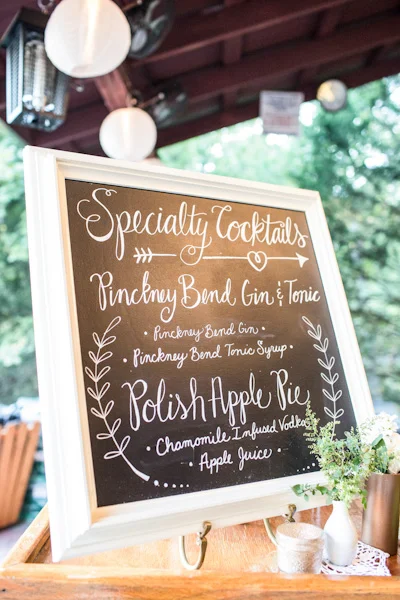 Specialty Cocktails
Pinckney Bend Gin & Tonic
• Pinckney Bend Gin •
• Pinckney Bend Tonic Syrup •
Polish Apple Pie
• Chamomile Infused Vodka
• Apple Juice •